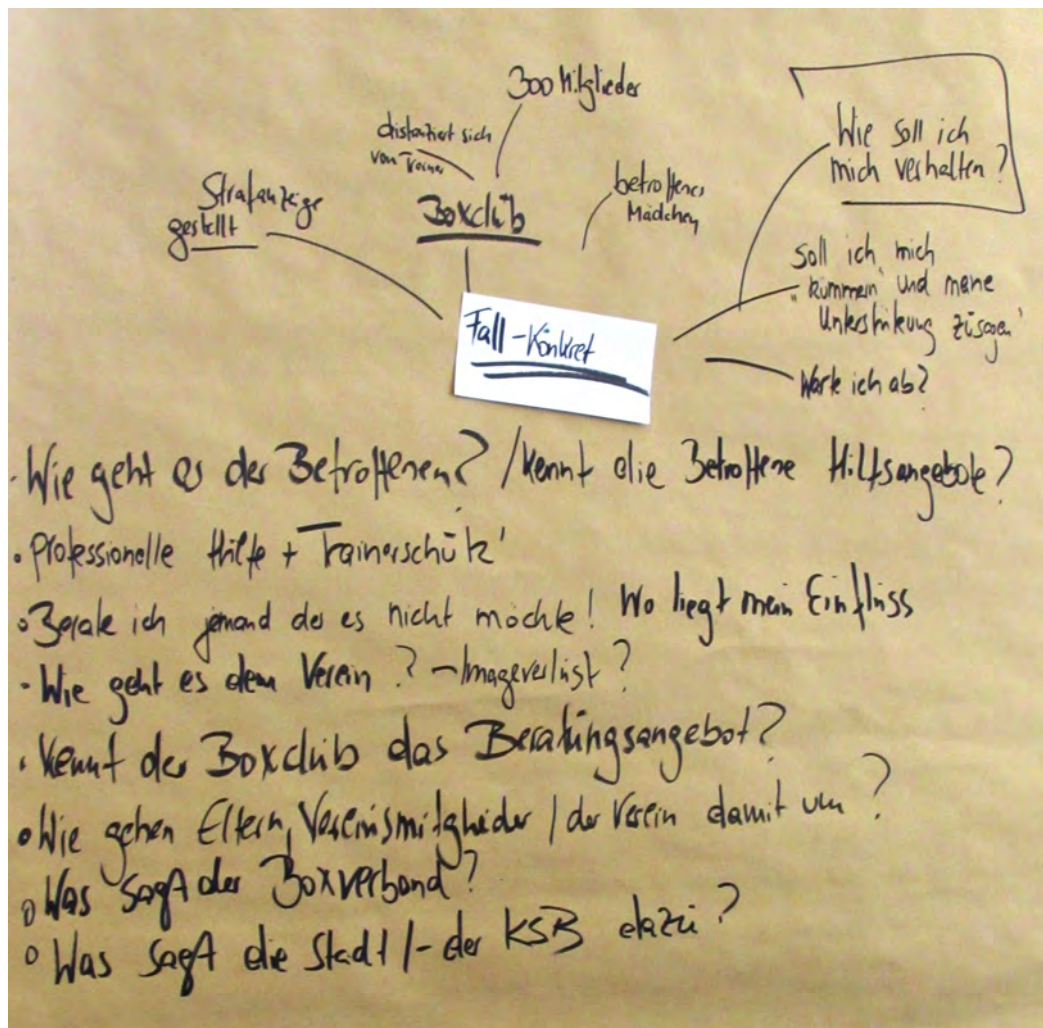 300 Mitglieder
distanziert sich
von Trainer
Boxclub
Strafanzeige
gestellt
betroffenes
Mädchen
Wie soll ich
mich verhalten?
Soll ich mich
"kümmern" und meine
Unterstützung zusagen"
Warte ich ab?
Fall - Konkret
· Wie geht es der Betroffenen? / kennt die Betroffene Hilfsangebote?
· professionelle Hilfe + "Trainerschutz"
· Berate ich jemand der es nicht möchte! Wo liegt mein Einfluss
· Wie geht es dem Verein? - Imageverlust?
· Kennt der Boxclub das Beratungsangebot?
· Wie gehen Eltern, Vereinsmitglieder / der Verein damit um?
· Was sagt der Boxverband?
· Was sagt die Stadt / - der KSB dazu?